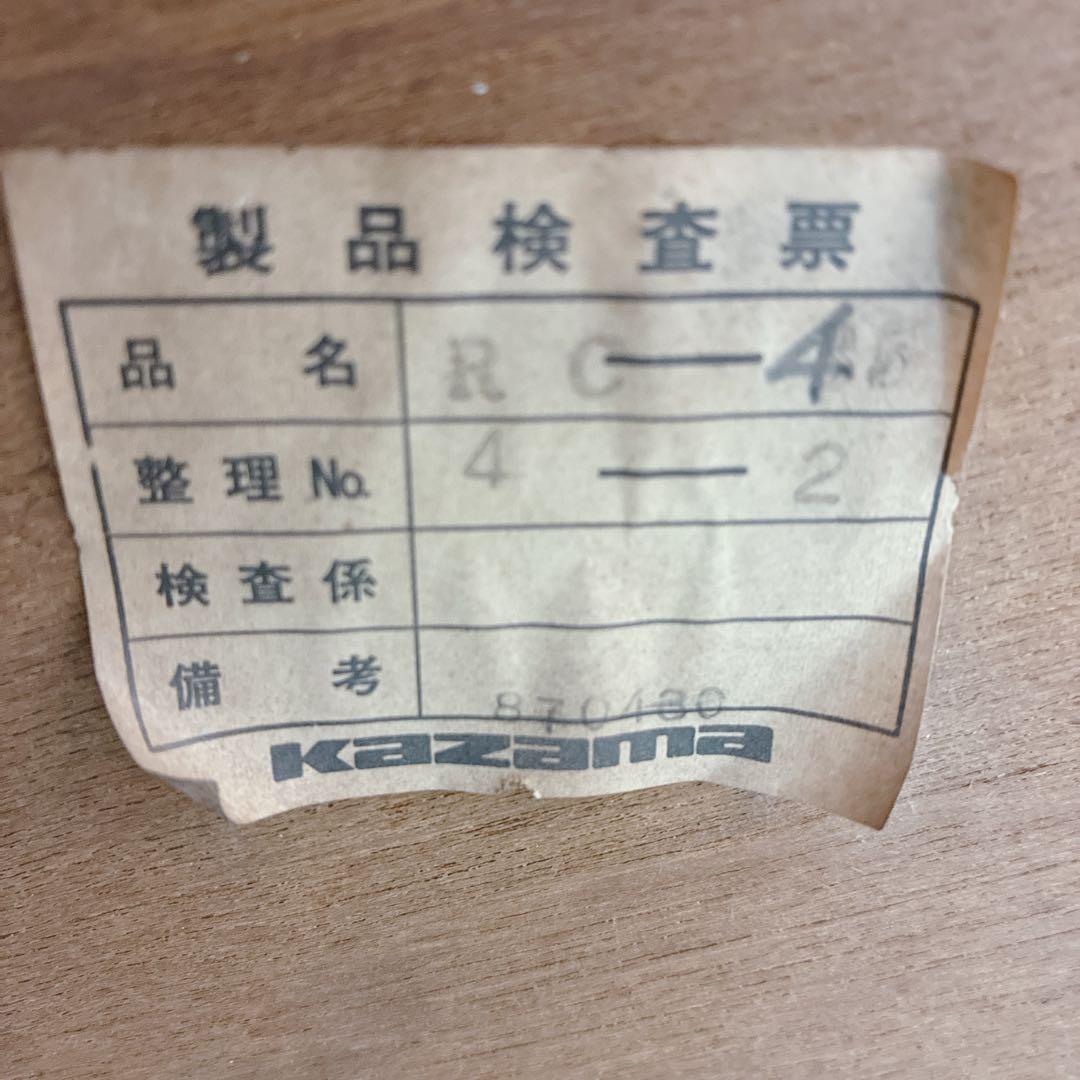 製品検査票
品名 RC-4
整理No. 4-2
検査係
備考 870430
kazama